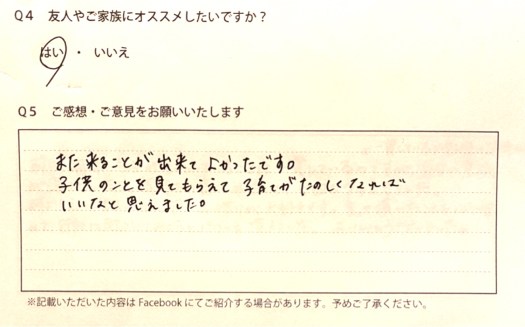 Q4 友人やご家族にオススメしたいですか？
はい ・ いいえ
Q5 ご感想・ご意見をお願いいたします
また来ることが出来てよかったです。
子供のことを見てもらえて子育てがたのしくなれば
いいなと思えました。
※記載いただいた内容は Facebook にてご紹介する場合があります。予めご了承ください。